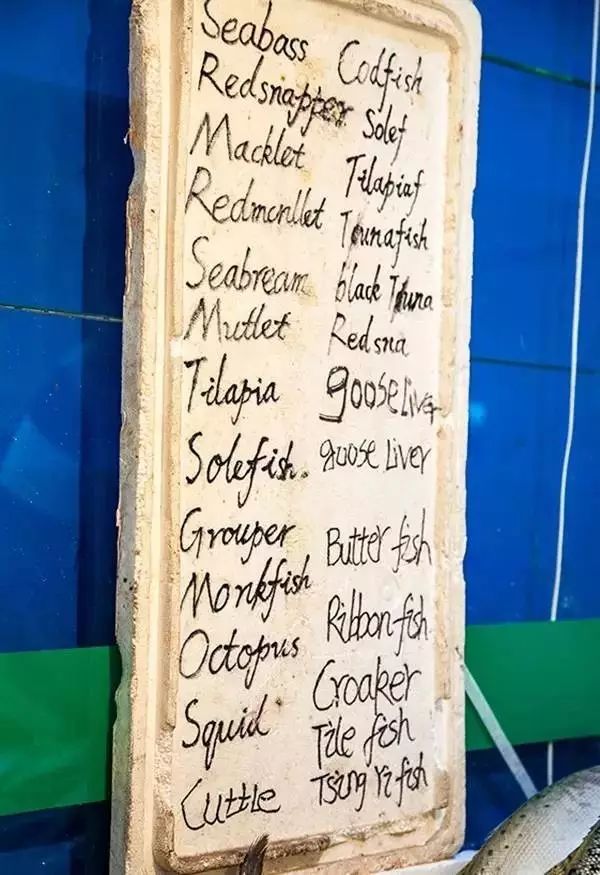 Seabass
Redsnapper
Macklet
Redmcnllet
Seabream
Mutlet
Tilapia
Solefish.
Grouper
Monkfish
Octopus
Squid
Cuttle
Codfish
Solef
Tilapiaf
Tounafish
black Touna
Redsna
gooseLiver
goose Liver
Butter fish
Ribbon-fish
Croaker
Tile fish
Tsing Yi fish